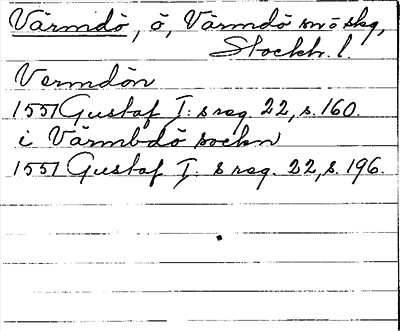 Värmdö, ö, Värmdö snö skg,
Stockh. l.
Vermdön
1551 Gustaf I: s reg. 22, s. 160.
i Värmbdö sockn
1551 Gustaf I: s reg. 22, s. 196.